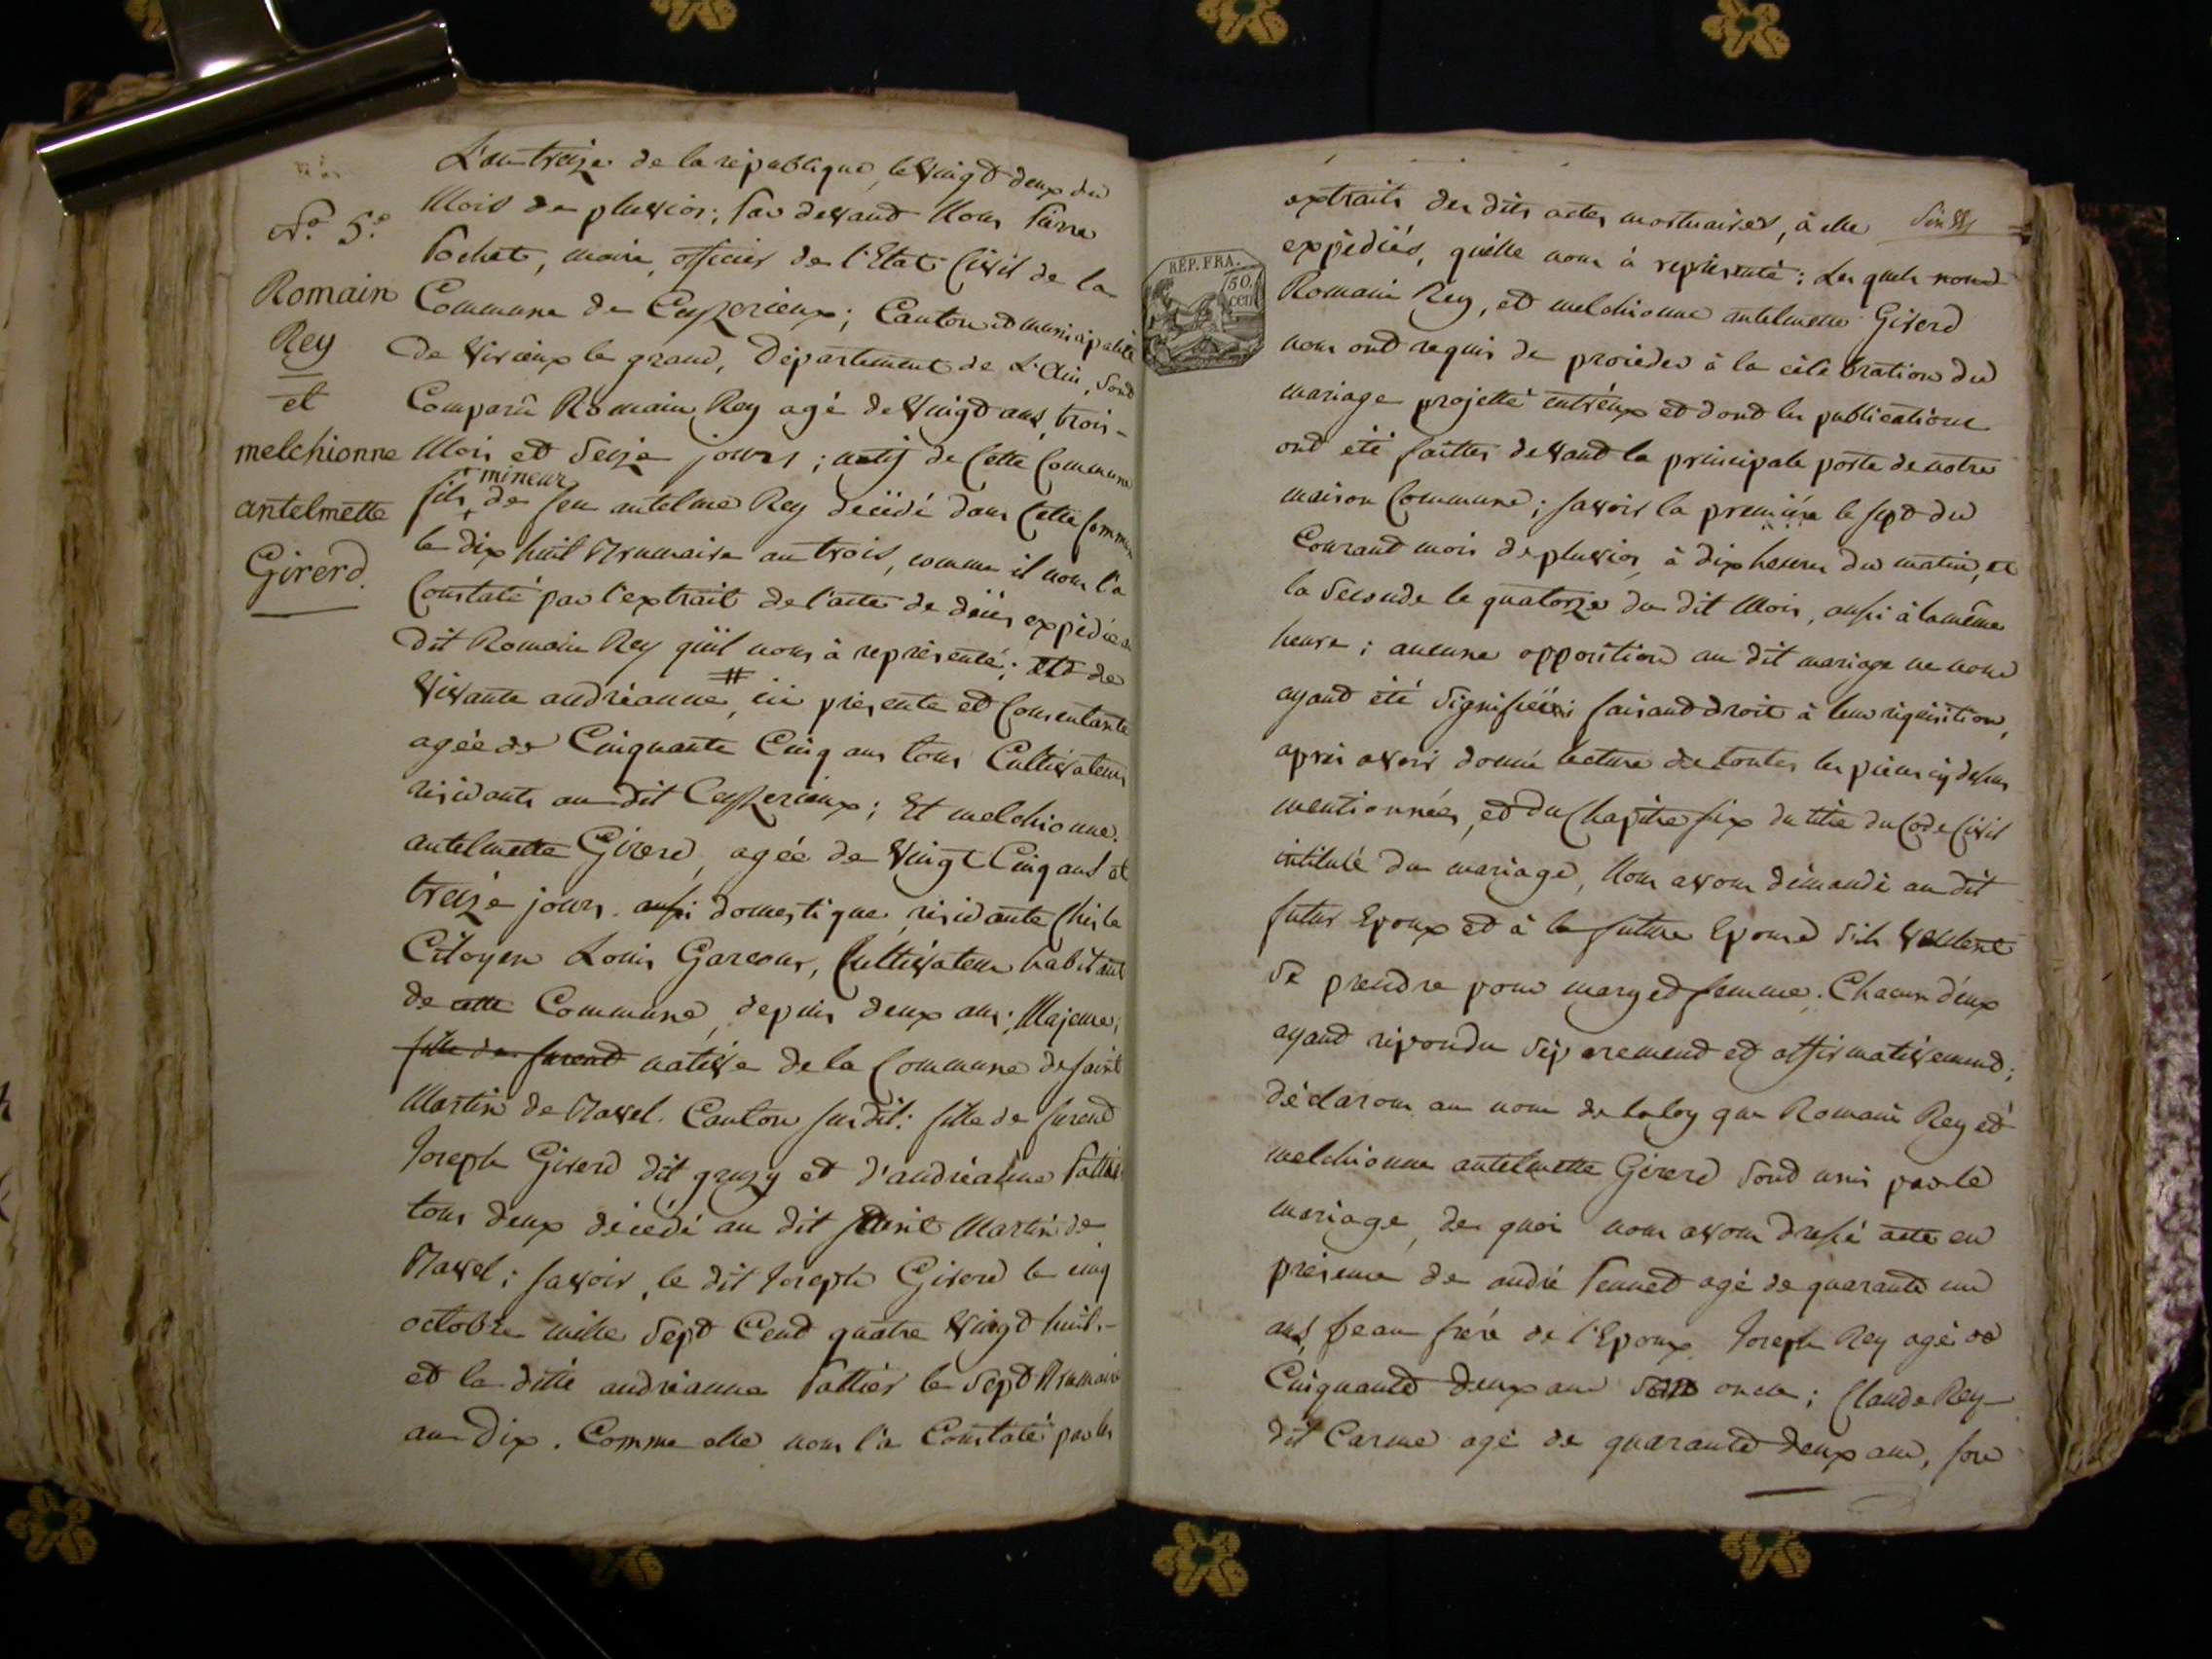 N.o 5.e
Romain
Rey
et
melchionne
antelmette
Girerd.
L'an treize de la république, le vingt deux du
Mois de pluvios; par devant Nous Pierre
Pochet, maire, officier de l'Etat Civil de la
Commune de Ceyzerieux; Canton et municipalité
de Virieux le grand, Département de L'Ain, sont
Comparû Romain Rey agé de vingt ans, trois-
Mois et seize jours; natif de Cette Commune
mineur
fils de feu antelme Rey décédé dans Cette Commune
le dix huit Brumaire an trois, comme il nous l'a
Constaté par l'extrait de l'acte de décès expédié au
dit Romain Rey qu'il nous à représenté; et de
#
vivante andréanne, ici présente et Consentante
agée de Cinquante Cinq ans tous Cultivateurs
residants au dit Ceyzerieux; Et melchionne.
antelmette Girerd, agée de vingt Cinq ans et
treize jours. aussi domestique, residante Chés le
Citoyen Louis Garcous, Cultivateur habitant
de cette Commune, depuis deux ans; Majeure;
fille de furent native de la Commune de saint
Martin de Bavel. Canton susdit: fille de furent
Joseph Girerd dit gruzy et d'andréanne Pattier
tous deux décédé au dit saint Martin de
Bavel; savoir, le dit Joseph Girerd le cinq
octobre mille sept Cent quatre vingt huit.-
et la ditte andréanne Pattier le sept Brumaire
an Dix. Comme elle nous l'a Constaté par les
extraits des dits actes mortuaires, à elle
expédiés, qu'elle nous à représenté: Les quels nomd
REP. FRA.
50.
cen
Romain Rey, et melchionne antelmette Girerd
nous ont requis de procéder à la célébration du
mariage projetté entr'eux et dont les publications
ont été faittes devant la principale porte de notre
maison Commune; savoir la premiére le sept du
Courant mois de pluvios, à dix heures du matin, et
la seconde le quatorze du dit Mois, aussi à la même
heure; aucune opposition au dit mariage ne nous
ayant été signifiée; faisant droit à leur réquisition,
après avoir donné lecture de toutes les pièces cy dessus
mentionnées, et du Chapitre six du titre du Code Civil
intitulé du mariage, Nous avons démandé au dit
futur Epoux et à la future Epouse s'ils veulent
se prendre pour mary et femme. Chacun d'eux
ayant répondu séparement et affirmativement;
déclarons au nom de la loy que Romain Rey et
melchionne antelmette Girerd sont unis par le
mariage, de quoi nous avons dressé acte en
présence de andré Pennet agé de quarante un
ans, beau frére de l'Epoux. Joseph Rey agé de
Cinquante deux ans son oncle; Claude Rey-
dit Carme agé de quarante deux ans, son